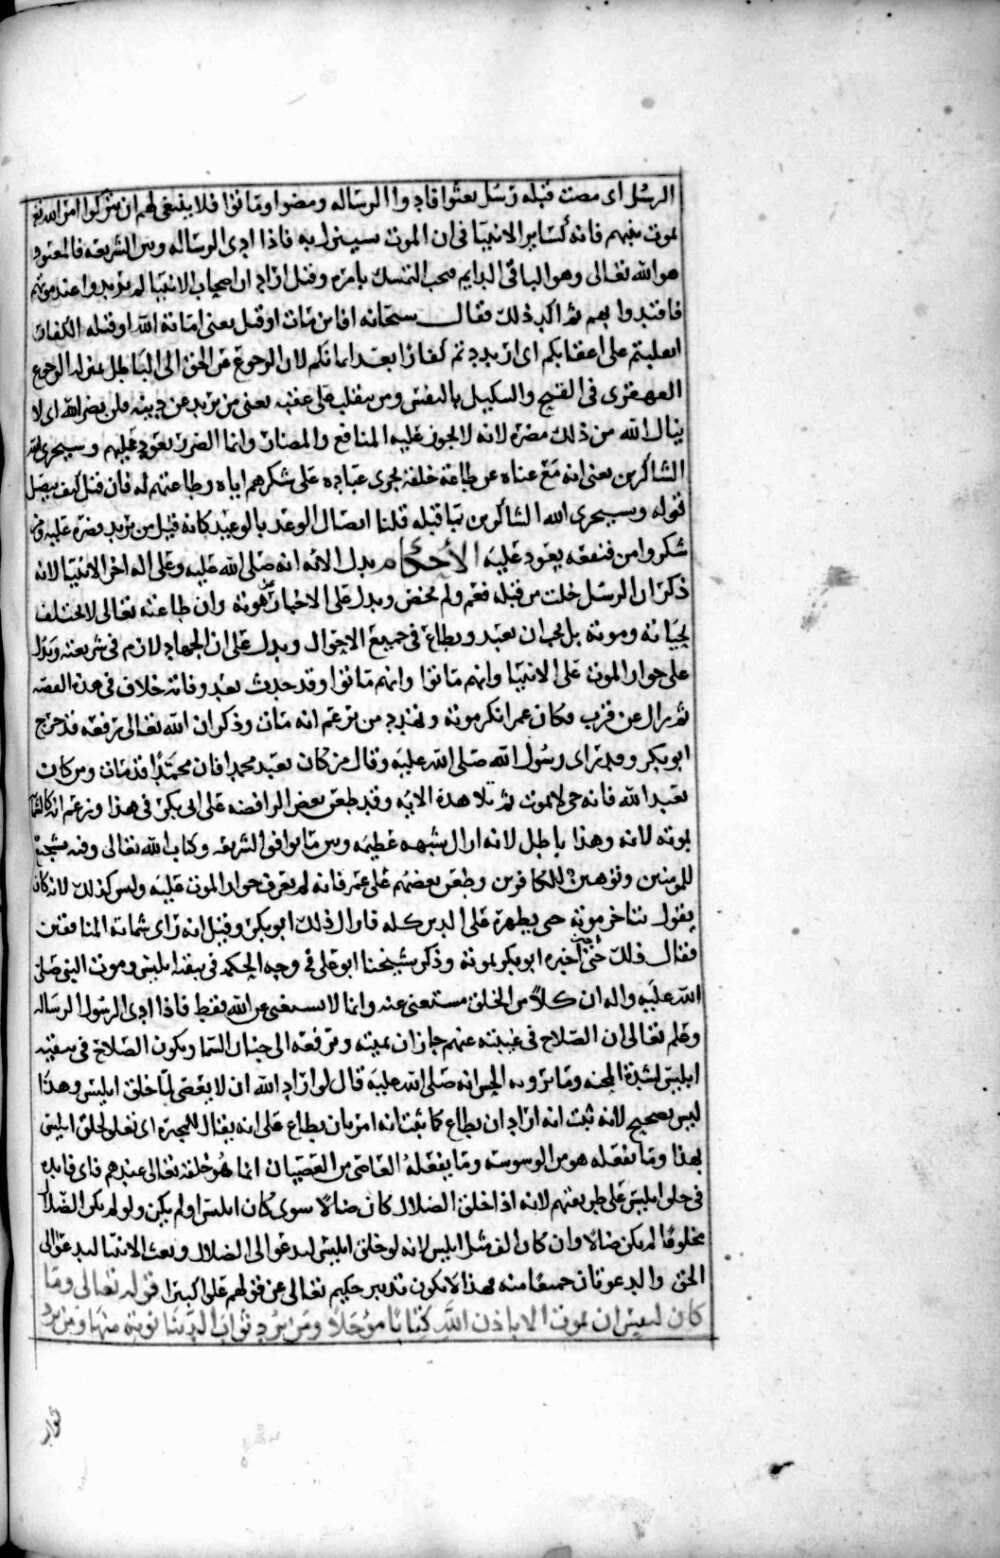 الرسل اى مضت قبله رسل بعثوا فادوا الرساله ومضوا وماتوا فلا ينبغى لهم ان يتركوا امر الله تع
بموت نبيهم فانه كساير الانبيا فى ان الموت سينزل به فاذا ادى الرساله وبين الشريعه فالمعبود
هو الله تعالى وهو الباقى الدايم فيجب التمسك بامره وقيل اراد ان اصحاب الانبيا لم يرتدوا عند موتهم
فاقتدوا بهم ثم اكد ذلك فقال سبحانه افاين مات او قتل يعنى اماته الله او قتله الكفار
انقلبتم على اعقابكم اى ارتددتم كفارا بعد ايمانكم لان الرجوع عن الحق الى الباطل بمنزله الرجوع
القهقرى فى القبح والتنكيل بالنفس ومن ينقلب على عقبيه يعنى من يرتد عن دينه فلن يضر الله اى لا
ينال الله من ذلك مضره لانه لا يجوز عليه المنافع والمضار وانما الضرر يعود عليهم وسيجزى الله
الشاكرين يعنى انه مع غناه عن طاعة خلقه يجزى عباده على شكرهم اياه وطاعتهم له فان قيل كيف يتصل
قوله وسيجزى الله الشاكرين بما قبله قلنا اتصال الوعد بالوعيد كانه قيل من يرتد فضرره عليه ومن
شكر وامن فنفعه يعود عليه الأحكام يدل الايه انه صلى الله عليه وعلى اله اخر الانبيا لانه
ذكر ان الرسل خلت من قبله فعم ولم يخص ويدل على الاخبار عن موته وان طاعته تعالى لا تختلف
بحياته وموته بل يجب ان يعبد ويطاع فى جميع الاحوال ويدل على ان الجهاد لازم فى شريعته ويدل
على جواز الموت على الانبيا وانهم ماتوا وانهم ماتوا وقد حدث بعد وفاته خلاف فى هذه القصه
ثم زال عن قرب فكان عمر انكر موته وتهدد من زعم انه مات وذكر ان الله تعالى رفعه فخرج
ابو بكر وقد راى رسول الله صلى الله عليه وقال من كان يعبد محمدا فان محمدا قد مات ومن كان
يعبد الله فانه حى لا يموت ثم تلا هذه الايه وقد طعن بعض الرافضه على ابى بكر فى هذا وزعم انه كالشامت
بموته لانه وهذا باطل لانه ازال شبهه عظيمه وبين ما يوافق الشريعه وكتاب الله تعالى وفيه تشجيع
للمومنين وتوهين للكافرين وطعن بعضهم على عمر فانه لم يعرف جواز الموت عليه وليس كذلك لانه كان
يقول يتاخر موته حتى يظهره على الدين كله فازال ذلك ابو بكر وقيل انه راى شماتة المنافقين
فقال ذلك حتى اخبره ابو بكر بموته وذكر شيخنا ابو على فى وجه الحكمه فى تبقيه ابليس وموت النبى صلى
الله عليه واله ان كلا من الخلق مستغنى عنه وانما لا يستغنى عن الله فقط فاذا ادى الرسول الرساله
وعلم تعالى ان الصلاح فى غيبته عنهم جاز ان يميته ويرفعه الى جنان السما ويكون الصلاح فى تبقيه
ابليس لشدة المحنه وما يرويه الحسن انه صلى الله عليه قال لو اراد الله ان لا يعصى لما خلق ابليس وهذا
ليس بصحيح لانه ثبت انه اراد ان يطاع كما ثبت انه امر بان يطاع على انه يقال للمجبره اى تعلق لخلق ابليس
بهذا وما يفعله هو من الوسوسه وما يفعله العاصى من العصيان انما هو خلقه تعالى عندهم فاى فايده
فى خلق ابليس على طريقتهم لانه اذا خلق الضلال كان ضالا سوى كان ابليس او لم يكن ولو لم يكن الضلال
مخلوقا لم يكن ضالا وان كان الف مثل ابليس لانه لو خلق ابليس ليدعو الى الضلال وبعث الانبيا ليدعوا الى
الحق والدعوتان جميعا منه فهذا لا يكون تدبير حكيم تعالى عن قولهم علوا كبيرا قوله تعالى وما
كان لنفس ان تموت الا باذن الله كتابا مؤجلا ومن يرد ثواب الدنيا نوته منها ومن يرد
ثواب